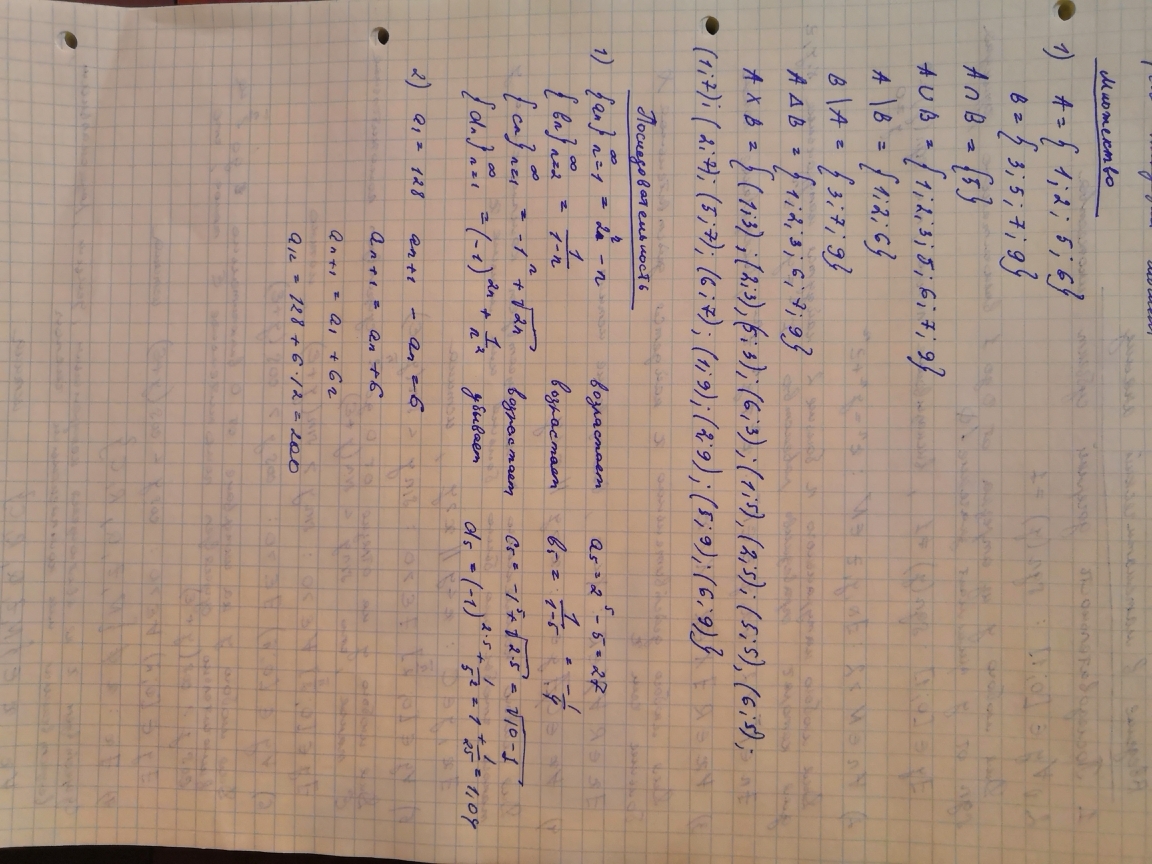 Множество
1) A = { 1; 2; 5; 6}
B = { 3; 5; 7; 9}
A ∩ B = {5}
A ∪ B = {1; 2; 3; 5; 6; 7; 9}
A \ B = {1; 2; 6}
B \ A = {3; 7; 9}
A Δ B = {1; 2; 3; 6; 7; 9}
A × B = {(1; 3) ; (2; 3), (5; 3) ; (6; 3) ; (1; 5), (2; 5) ; (5; 5), (6; 5) ;
(1; 7) ; (2; 7) ; (5; 7) ; (6; 7) ; (1; 9) ; (2; 9) ; (5; 9) ; (6; 9)}
Последовательность
1) {an} ∞ n=1 = 2ⁿ - n возрастает a₅ = 2⁵ - 5 = 27
{bn} ∞ n=2 = 1/(1-n) возрастает b₅ = 1/(1-5) = -1/4
{cn} ∞ n=1 = -1ⁿ + √2n возрастает c₅ = -1⁵ + √2·5 = √10 - 1
{dn} ∞ n=1 = (-1)²ⁿ + 1/n² убывает d₅ = (-1)²·⁵ + 1/5² = 1 + 1/25 = 1,04
2) a₁ = 128 an+1 - an = 6
an+1 = an + 6
an+1 = a₁ + 6n
a₁₂ = 128 + 6·12 = 200